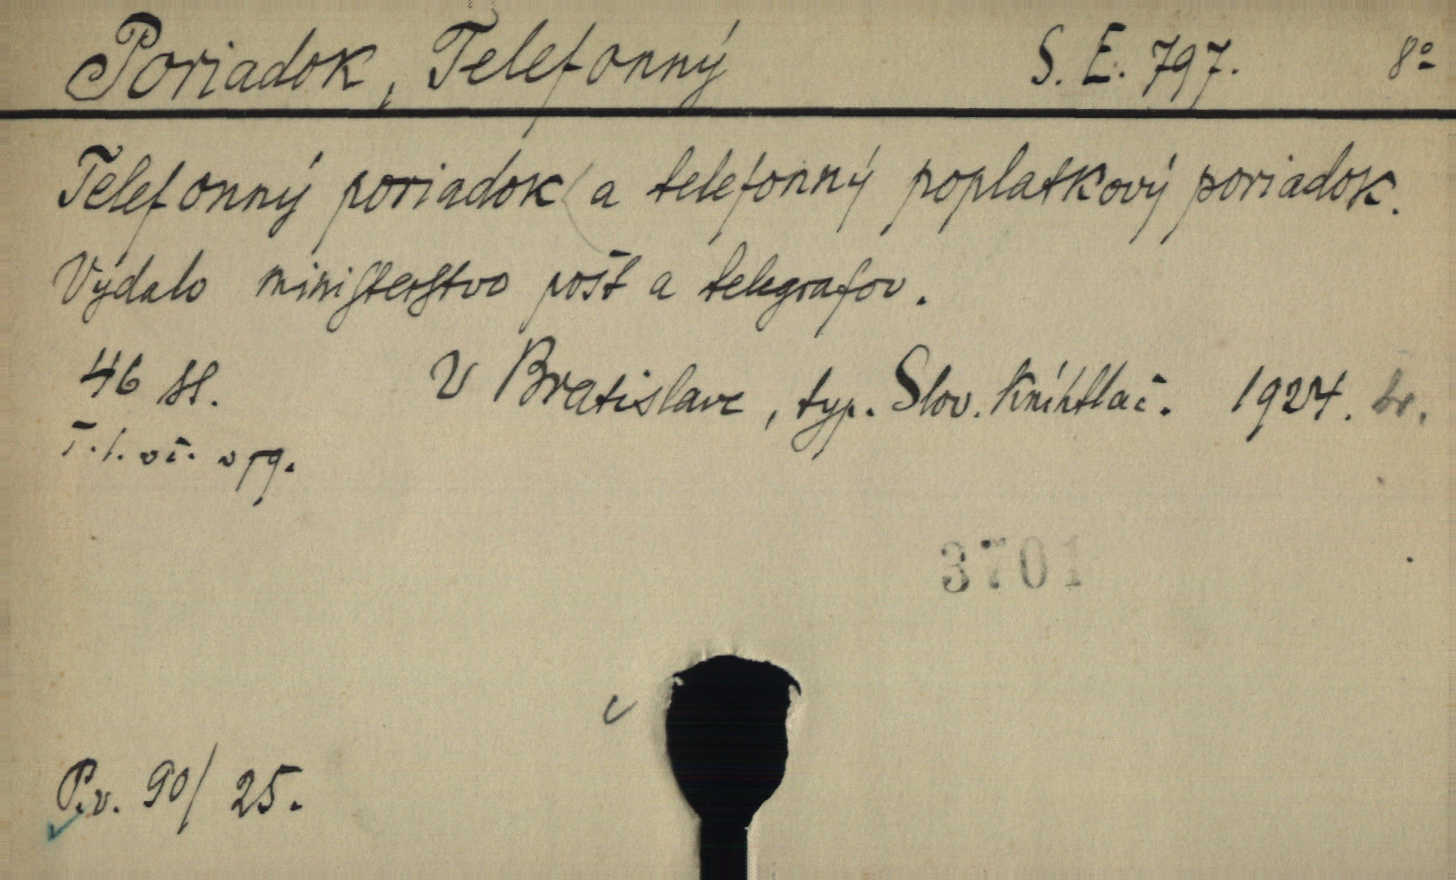 Poriadok, Telefonný S. E. 797. 8º
Telefonný poriadok a telefonný poplatkový poriadok.
Vydalo ministerstvo pošt a telegrafov.
46 st. V Bratislave, typ. Slov. Kníhtlač. 1924. br.
3701
P.v. 90/25.